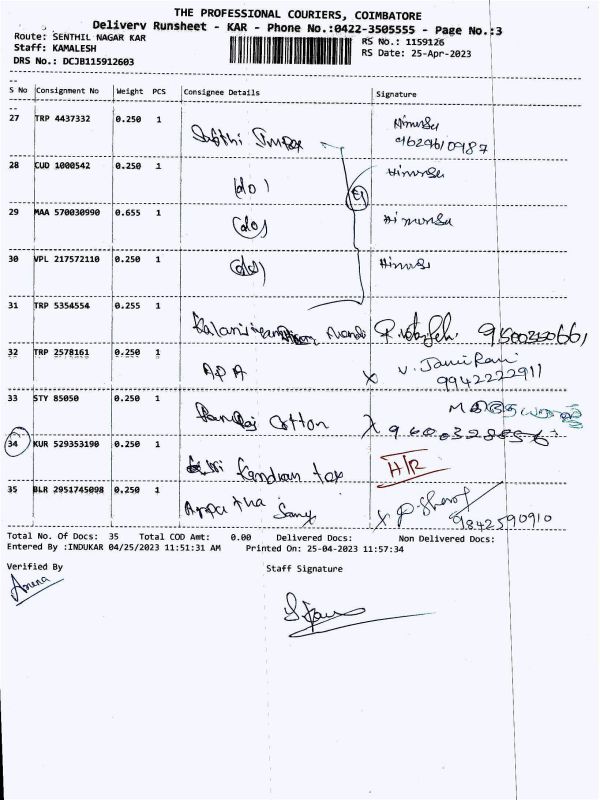 THE PROFESSIONAL COURIERS, COIMBATORE
Delivery Runsheet - KAR - Phone No.:0422-3505555 - Page No.:3
Route: SENTHIL NAGAR KAR
RS No.: 1159126
Staff: KAMALESH
RS Date: 25-Apr-2023
DRS No.: DCJB115912603
S No Consignment No Weight PCS Consignee Details Signature
27 TRP 4437332 0.250 1
9629610987
28 CUD 1000542 0.250 1 (do)
29 MAA 570030990 0.655 1 (do)
30 VPL 217572110 0.250 1 (do)
31 TRP 5354554 0.255 1
32 TRP 2578161 0.250 1 APA x V. Jami Rani
9942222911
33 STY 85050 0.250 1 Cotton
34 KUR 529353190 0.250 1 tex H/R
35 BLR 2951745098 0.250 1 x
9842590910
Total No. Of Docs: 35 Total COD Amt: 0.00 Delivered Docs: Non Delivered Docs:
Entered By :INDUKAR 04/25/2023 11:51:31 AM Printed On: 25-04-2023 11:57:34
Verified By Staff Signature
Amena